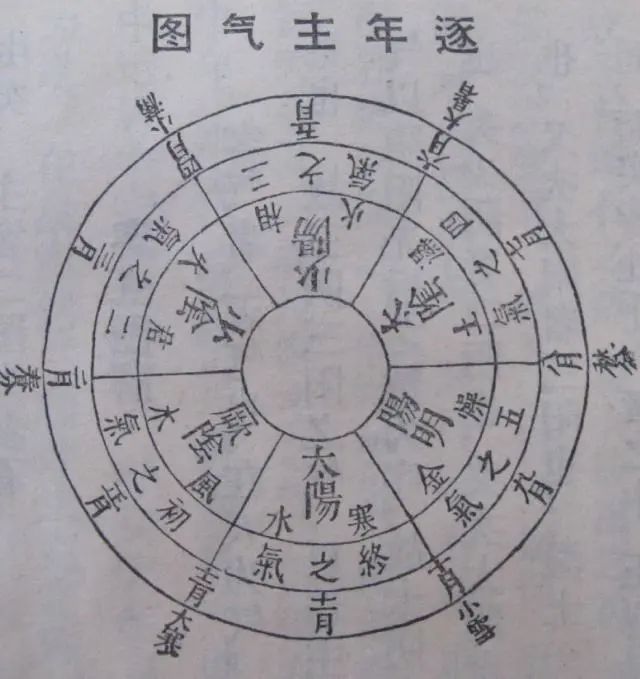 逐年主气图
大寒
十二月
正月
初之氣
厥陰
風木
春分
二月
三月
二之氣
少陰
君火
小滿
四月
五月
三之氣
少陽
相火
大暑
六月
七月
四之氣
太陰
濕土
秋分
八月
九月
五之氣
陽明
燥金
小雪
十月
十一月
終之氣
太陽
寒水